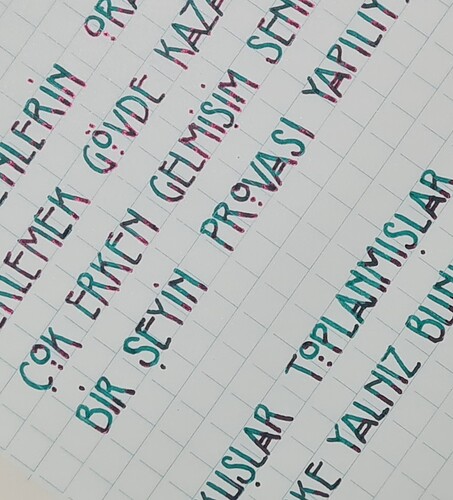 MLERİN ORA
KLEMEK GÖVDE KAZA
ÇOK ERKEN GELMİŞİM SEN
BİR ŞEYİN PROVASI YAPILIY
KUŞLAR TOPLANMIŞLAR
KE YALNIZ BUN